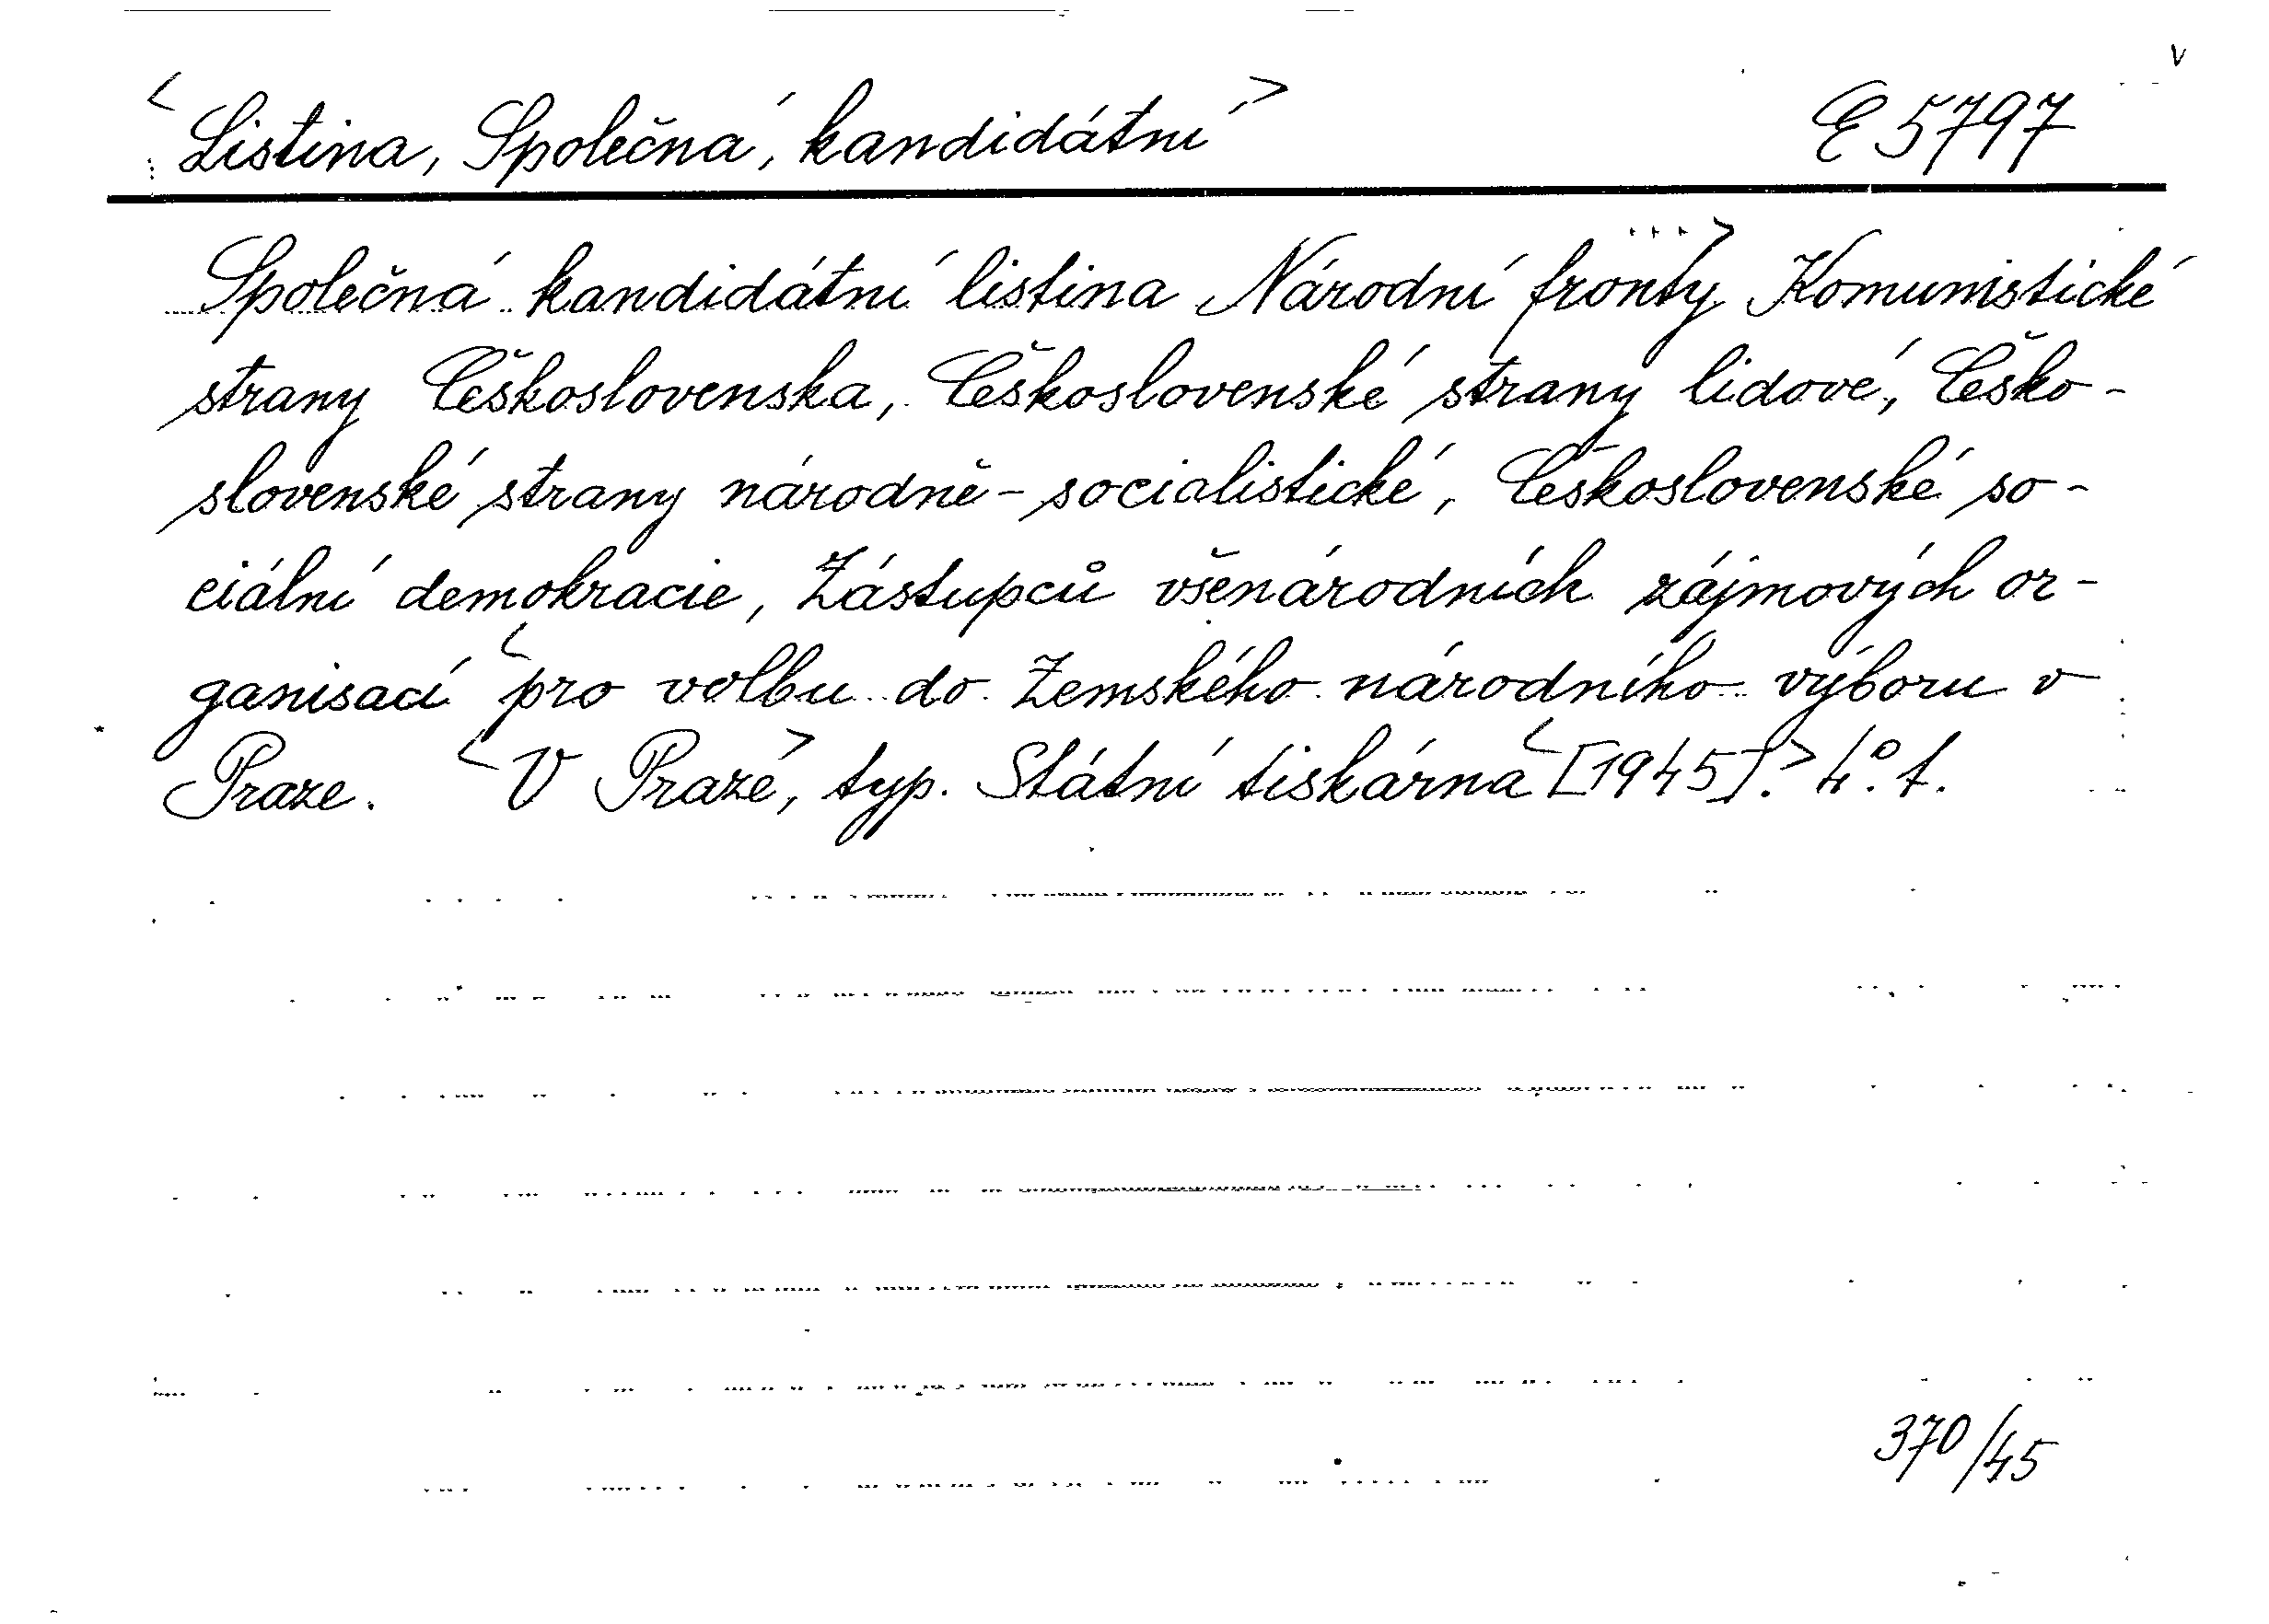 <Listina, Společná, kandidátní> E 5797
Společná kandidátní listina Národní fronty ...> Komunistické
strany Československa, Československé strany lidové, Česko-
slovenské strany národně-socialistické, Československé so-
ciální demokracie, Zástupců všenárodních zájmových or-
ganisací <pro volbu do Zemského národního výboru v
Praze. <V Praze>, typ. Státní tiskárna <[1945].> 4°. f.
370/45